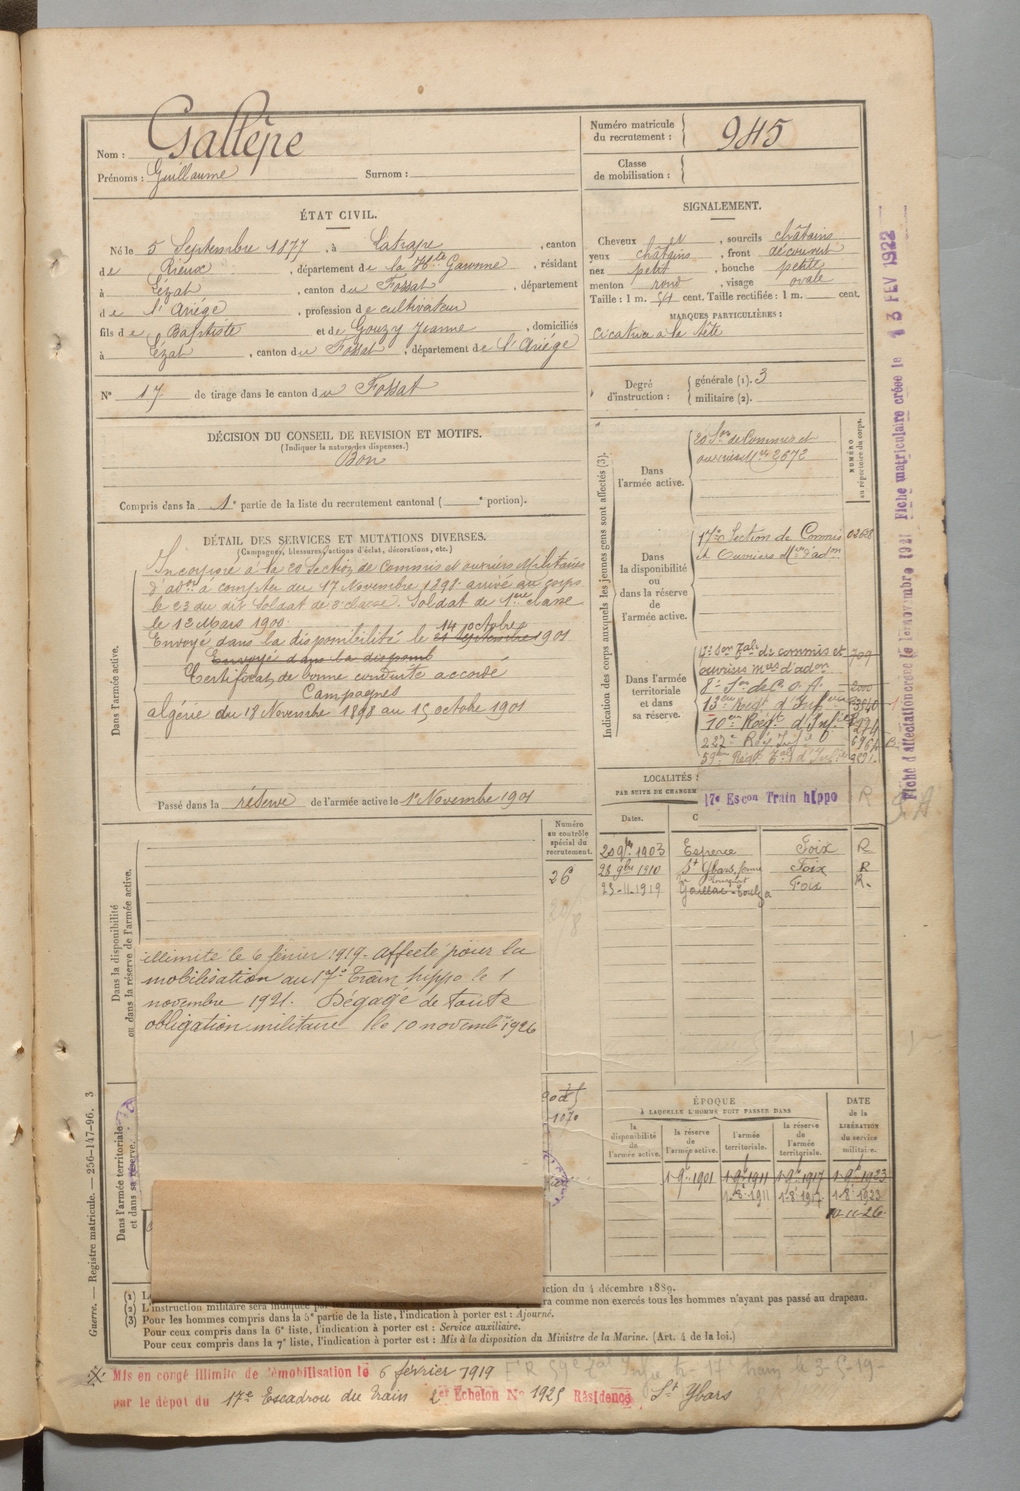 Nom : Gallèpe
Prénoms : Guillaume Surnom :
Numéro matricule du recrutement : 945
Classe de mobilisation :
ÉTAT CIVIL.
Né le 5 Septembre 1877, à Latrape, canton
de Rieux, département de la Hte Garonne, résidant
à Lézat, canton du Fossat, département
de l'Ariége, profession de cultivateur
fils de Baptiste et de Gouzy Jeanne, domiciliés
à Lézat, canton du Fossat, département de l'Ariége
N° 17 de tirage dans le canton du Fossat
SIGNALEMENT.
Cheveux et, sourcils châtains
yeux châtains, front découvert
nez petit, bouche petite
menton rond, visage ovale
Taille : 1 m. 54 cent. Taille rectifiée : 1 m. cent.
MARQUES PARTICULIÈRES :
cicatrice à la tête
Degré d'instruction : générale (1). 3
militaire (2).
DÉCISION DU CONSEIL DE REVISION ET MOTIFS.
(Indiquer la nature des dispenses.)
Bon
Compris dans la 1e partie de la liste du recrutement cantonal ( e portion).
DÉTAIL DES SERVICES ET MUTATIONS DIVERSES.
(Campagnes, blessures, actions d'éclat, décorations, etc.)
Dans l'armée active.
Incorporé à la 20e Section de Commis et ouvriers Militaires
d'adon à compter du 17 Novembre 1898 arrivé au corps
le 23 du dit Soldat de 2e classe. Soldat de 1ere classe
le 12 Mars 1900.
14 octobre
Envoyé dans la disponibilité le 21 Septembre 1901
Envoyé dans la disponib
Certificat de bonne conduite accordé
Campagnes
algérie du 18 Novembre 1898 au 15 octobre 1901
Passé dans la réserve de l'armée active le 1er Novembre 1901
Indication des corps auxquels les jeunes gens sont affectés (3).
NUMÉRO au répertoire du corps.
Dans l'armée active.
20 Son de Commis et
ouvriers Mres 2672
Dans la disponibilité ou dans la réserve de l'armée active.
17e Section de Commis 02688
et Ouvriers Mres d'adon
Dans l'armée territoriale et dans sa réserve.
17e Son Tale de commis et 709
ouvriers mres d'adon
8e Son de C. O. A. 200
13eme Régt d'Infrie
10eme Régt d'Infrie
59eme Régt Tal d'Infrie
LOCALITÉS :
PAR SUITE DE CHANGEM
17e Escon Train hippo R
Dates.
20 9bre 1903 Esperce Foix R
28 9bre 1910 St Ybars, ferme Foix R
23-11-1919 Gaillac-Toulza Foix R.
Numéro au contrôle spécial du recrutement.
26
Dans la disponibilité ou dans la réserve de l'armée active.
illimité le 6 février 1919. Affecté pour la
mobilisation au 17e Train hippo le 1
novembre 1921. Dégagé de toute
obligation militaire le 10 novembre 1926
Dans l'armée territoriale et dans sa réserve.
ÉPOQUE
À LAQUELLE L'HOMME DOIT PASSER DANS
la disponibilité de l'armée active.
la réserve de l'armée active.
l'armée territoriale.
la réserve de l'armée territoriale.
DATE de la LIBÉRATION du service militaire.
1-9bre 1901 1-9bre 1911 1-9bre 1917 1-9bre 1923
1-8e 1911 1-8e 1917 1-8e 1923
10-11-26.
(1) L
ction du 4 décembre 1889.
(2) L'instruction militaire sera indiquée par les mots
ra comme non exercés tous les hommes n'ayant pas passé au drapeau.
(3) Pour les hommes compris dans la 5e partie de la liste, l'indication à porter est : Ajourné.
Pour ceux compris dans la 6e liste, l'indication à porter est : Service auxiliaire.
Pour ceux compris dans la 7e liste, l'indication à porter est : Mis à la disposition du Ministre de la Marine. (Art. 4 de la loi.)
Mis en congé illimité de démobilisation le 6 février 1919
par le dépot du 17e Escadron du Train 2e Echelon N° 1925 Résidence St Ybars
Guerre. — Registre matricule. — 256-147-96. 3
Fiche d'affectation créée le 1er novembre 1921 Fiche matriculaire créée le 13 FEV 1922